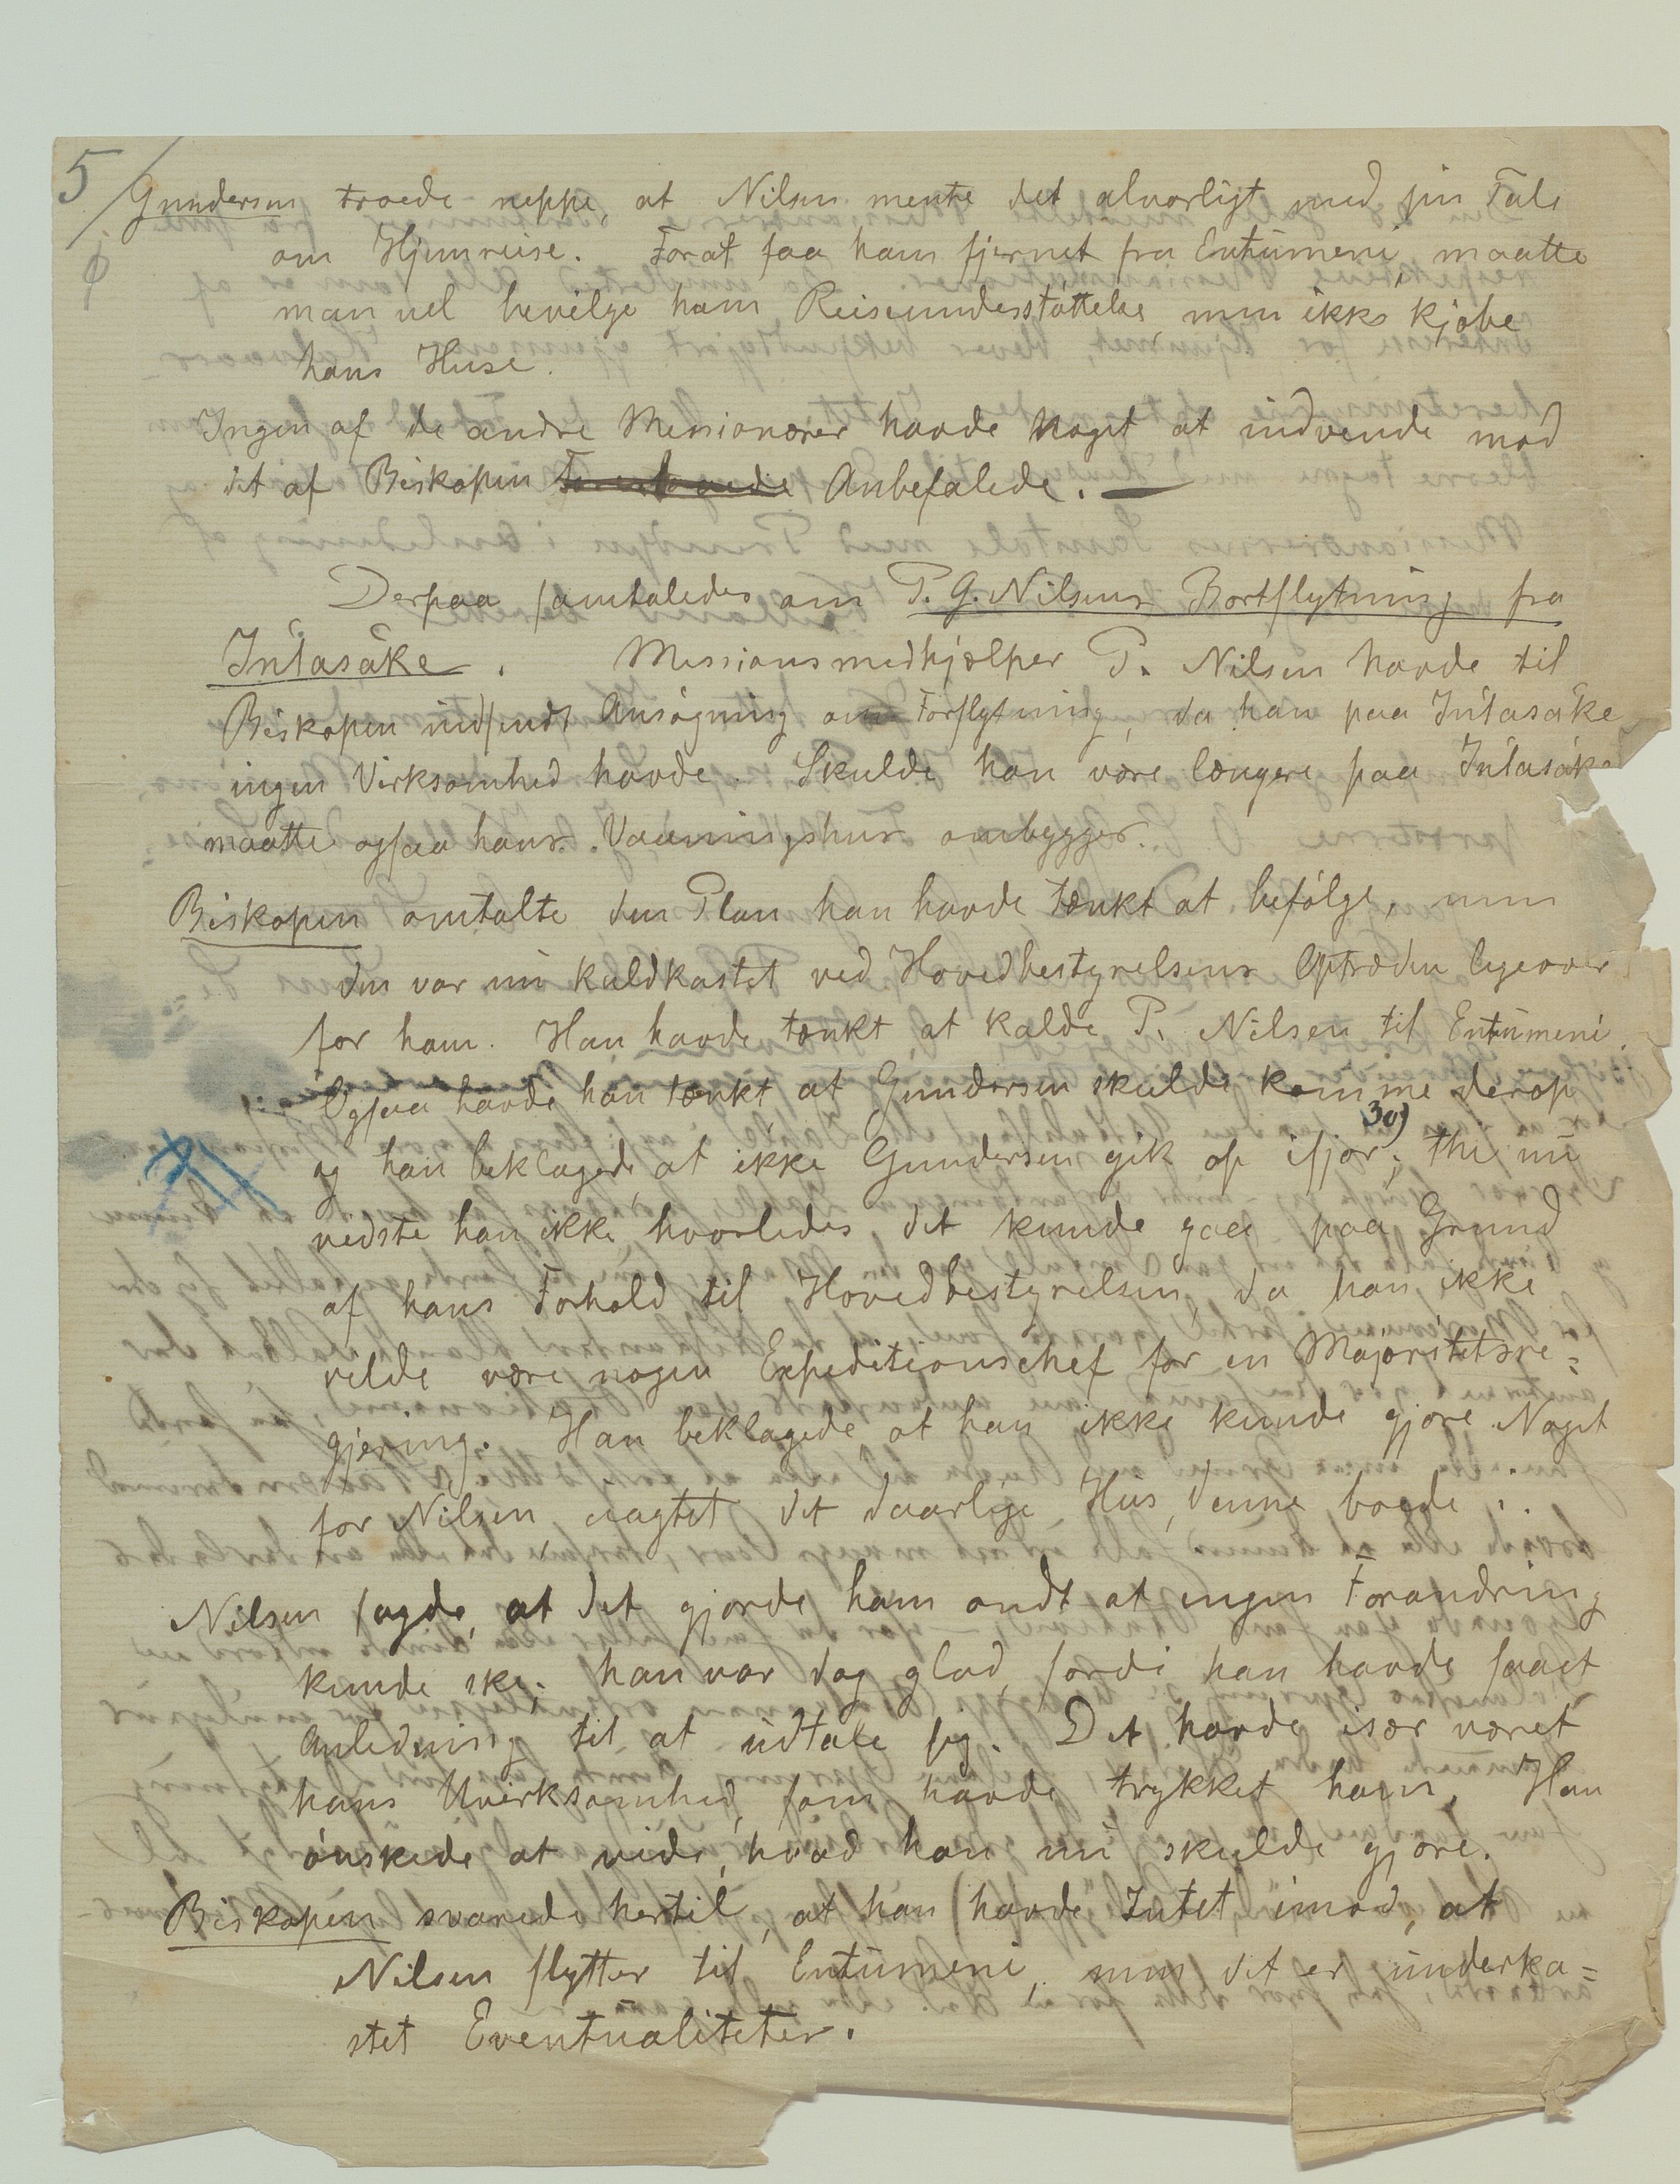 5/
Gundersen troede neppe, at Nilsen mente det alvorligt med sin Tale
om Hjemreise. Forat faa ham fjernet fra Entumeni, maatte
man vel bevilge ham Reiseunderstøttelse, men ikke kjøbe
hans Huse.
Ingen af de andre Missionærer havde Noget at indvende mod
det af Biskopen Foreslaaede Anbefalede. —
Derpaa samtaledes om P. G. Nilsens Bortflytning fra
Inlasáke. Missionsmedhjælper P. Nilsen havde til
Biskopen indsendt Ansøgning om Forflytning, da han paa Inlasáke
ingen Virksomhed havde. Skulde han være længere paa Inlasáke
maatte ogsaa hans Vaaningshus ombygges.
Biskopen omtalte den Plan han havde tænkt at befølge, men
den var nu kuldkastet ved Hovedbestyrelsens Optræden ligeover
for ham. Han havde tænkt at kalde P. Nilsen til Entumeni.
Ogsaa havde han tænkt at Gundersen skulde komme derop
30)
og han beklagede at ikke Gundersen gik op ifjor; thi nu
vidste han ikke hvorledes det kunde gaa paa Grund
af hans Forhold til Hovedbestyrelsen, da han ikke
vilde være nogen Expeditionschef for en Majoritetsre=
gjering. Han beklagede at han ikke kunde gjøre Noget
for Nilsen uagtet det daarlige Hus, denne boede i.
Nilsen sagde, at det gjorde ham ondt at ingen Forandring
kunde ske; han var dog glad, fordi han havde faaet
Anledning til at udtale sig. Det havde især været
hans Uvirksomhed, som havde trykket ham. Han
ønskede at vide, hvad han nu skulde gjøre.
Biskopen svarede hertil, at han havde Intet imod, at
Nilsen flytter til Entumeni, men det er underka=
stet Eventualiteter.